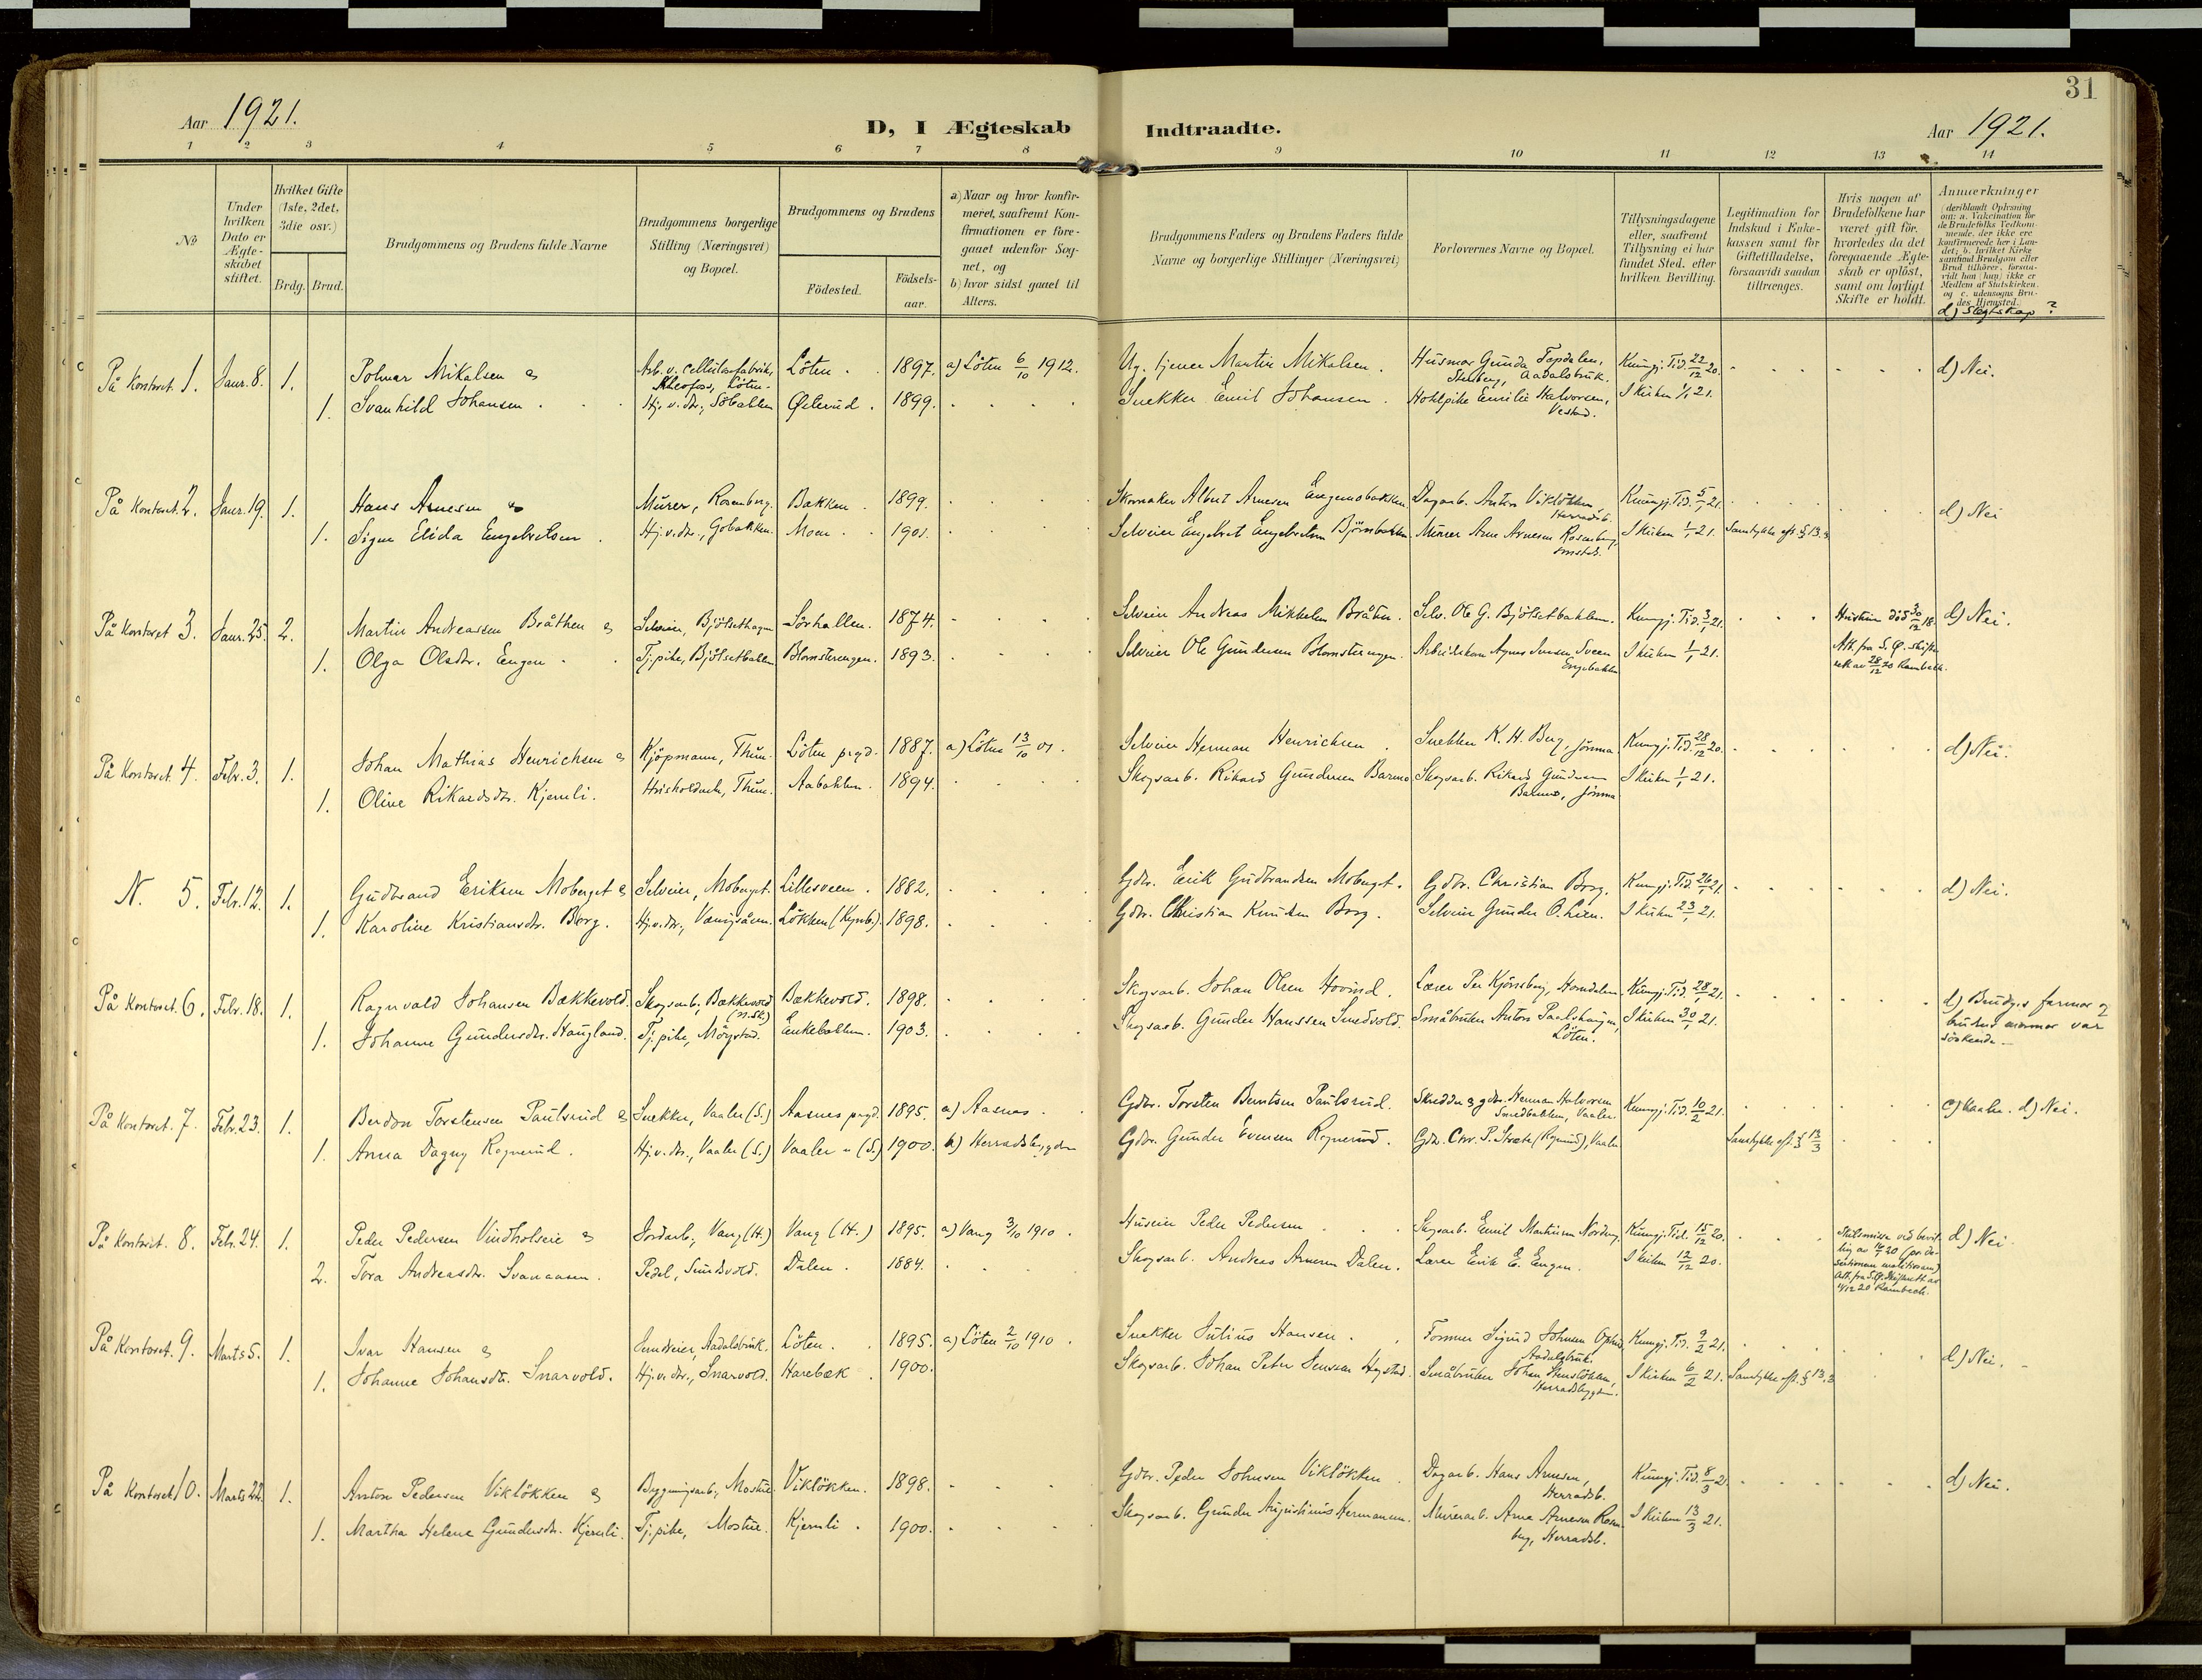 31
Aar 1921.
D, I Ægteskab Indtraadte.
Aar 1921.
1 2 3 4 5 6 7 8 9 10 11 12 13 14
No
Under hvilken Dato er Ægteskabet stiftet.
Hvilket Gifte (1ste, 2det, 3die osv.)
Brdg. Brud.
Brudgommens og Brudens fulde Navne
Brudgommens borgerlige Stilling (Næringsvei) og Bopæl.
Brudgommens og Brudens
Födested.
Födselsaar.
a) Naar og hvor konfirmeret, saafremt Konfirmationen er foregaaet udenfor Sognet, og
b) hvor sidst gaaet til Alters.
Brudgommens Faders og Brudens Faders fulde Navne og borgerlige Stillinger (Næringsvei)
Forlovernes Navne og Bopæl.
Tillysningsdagene eller, saafremt Tillysning ei har fundet Sted, efter hvilken Bevilling.
Legitimation for Indskud i Enkekassen samt for Giftetilladelse, forsaavidt saadan tiltrænges.
Hvis nogen af Brudefolkene har været gift för, hvorledes da det foregaaende Ægteskab er oplöst, samt om lovligt Skifte er holdt.
Anmærkninger (deriblandt Oplysning om: a. Vakcination for de Brudefolks Vedkommende, der ikke ere konfirmerede her i Landet; b. hvilket Kirkesamfund Brudgom eller Brud tilhörer, forsaavidt han (hun) ikke er Medlem af Statskirken, og c. udensogns Brudes Hjemsted.)
d) Slegtskap?
På Kontoret 1. Janr. 8. 1. Polmar Mikalsen & Arb. v. cellulosefabrik, Klevfos, Löten. Löten 1897. a) Löten 6/10 1912. Martin Mikalsen. Husmor Gunda Tapdalen, Stenberg, Aadalsbruk. Kungj. Tid. 22/12 20. d) Nei.
1. Svanhild Johansen Hj. v. dr., Östlund 1899. Snekker Emil Johansen. Emilie Halvorsen, I kirken 1/1 21.
På Kontoret 2. Janr. 19. 1. Hans Arnesen & Murer, Rosenberg. Bakken 1899. Skomaker Albert Arnesen Dagarb. Anton Viklökken Herradsb. Kungj. Tid. 5/1 21. d) Nei
1. Signe Elida Engebretsen Hj. v. dr., Gobakken. Moen 1901. Selveier Engebret Engebretsen Björnbakken Murer Arne Arnesen Rosenberg I kirken 1/1 21. Samtykke eft. § 13.3
På Kontoret 3. Janr. 25. 2. Martin Andreassen Bråthen & Selveier, Bjölsethagen Sörhallen. 1874. Selveier Andreas Mikkelsen Bråten. Selv. Ole G. Bjölsetbakken. Kungj. Tid. 3/1 21. Hustruen död 30/12 18. d) Nei.
1. Olga Olsdtr. Engen Tj. pike, Bjölsetbakken Blomsterengen. 1893. Selveier Ole Gundersen Blomsterengen. Arbeiderkone Agnes Sveen Engebakken I kirken 1/1 21. Att. fra S. Ø. skifterett av 28/12 20 Rambech.
På Kontoret 4. Febr. 3. 1. Johan Mathias Henrichsen & Kjöpmann, Löten pgd. 1887. a) Löten 13/10 01. Selveier Herman Henrichsen Snekker K. H. Berg, Jömna Kungj. Tid. 28/12 20. d) Nei.
1. Olive Rikardsdtr. Kjernli. Aabakken 1894. Skogsarb. Rikard Gundersen Barmo Skogsarb. Rikard Gundersen Barmo, Jömna I kirken 1/1 21.
N. 5. Febr. 12. 1. Gudbrand Eriksen Moberget & Selveier, Moberget. Lillesveen. 1882. Gdbr. Erik Gudbrandsen Moberget. Gdbr. Christian Borg. Kungj. Tid. 26/1 21. d) Nei.
1. Karoline Kristiansdtr. Borg. Hj. v. dr., Lökken (Kynb.) 1898. Gdbr. Christian Knudsen Borg. Selveier Gunder O. Lien. I kirken 23/1 21.
På Kontoret 6. Febr. 18. 1. Ragnvald Johansen Bækkevold. Skogsarb., Bækkevold (n. Sk.) Bækkevold. 1898. Skogsarb. Johan Olsen Hovind. Lærer Per Kjönsberg, Horndalen Kungj. Tid. 28/1 21. d) Brudg.s farmor og brudens mormor var söskende.
1. Johanne Gundersdtr. Haugland. Tj. pike, Möystad. Enkebakken. 1903. Skogsarb. Gunder Hanssen Smedvold. Småbruker Anton Paulshaugen, Löten. I kirken 30/1 21.
På Kontoret 7. Febr. 23. 1. Berdon Torstensen Paulsrud & Snekker, Vaaler (S.) Aasnes pgd. 1895. a) Aasnes. Gdbr. Torsten Berntsen Paulsrud. Skredder & gdbr. Herman Halvorsen Smedbakken, Vaaler. Kungj. Tid. 10/2 21. c) Vaaler. d) Nei.
1. Anna Dagny Rognerud. Hj. v. dr., Vaaler (S.) Vaaler (S.) 1900. b) Herradsbygden Gdbr. Gunder Evensen Rognerud. Gdbr. Chr. P. Stræte (Rognerud), Vaaler Samtykke eft. § 13/3
På Kontoret 8. Febr. 24. 1. Peder Pedersen Vindholseie & Jordarb., Vang (H.) Vang (H.) 1895. a) Vang 3/10 1910. Huseier Peder Pedersen Skogsarb. Emil Martinsen Nordeng, Kungj. Tid. 15/12 20. Skilsmisse ved bevilling av d) Nei
2. Tora Andreasdtr. Svanaasen. Pedel, Sundvold. Dalen 1884. Skogsarb. Andreas Arnesen Dalen. Lærer Erik E. Engen. I kirken 12/12 20. Att. fra S. Ø. Skifterett av 14/12 20 Rambech.
På Kontoret 9. Marts 5. 1. Ivar Hansen & Aadalsbruk. Löten 1895. a) Löten 2/10 1910. Snekker Julius Hansen. Former Sigurd Johnsen Opsal, Aadalsbruk. Kungj. Tid. 9/2 21. d) Nei.
1. Johanne Johansdtr. Snarvold. Hj. v. dr., Snarvold. Harebæk 1900. Skogsarb. Johan Peter Jensen Småbruker Johan Herradsbygden. I kirken 6/2 21. Samtykke eft. § 13.3
På Kontoret 10. Marts 22. 1. Anton Pedersen Viklökken & Bygningsarb., Mostue. Viklökken. 1898. Gdbr. Peder Johnsen Viklökken. Dagarb. Hans Arnesen, Herradsb. Kungj. Tid. 8/3 21. d) Nei.
1. Martha Helene Gundersdtr. Kjernli. Tj. pike, Mostue. Kjernli 1900. Skogsarb. Gunder Augustinus Hermansen. Murerarb. Arne Arnesen Rosenberg, Herradsb. I kirken 13/3 21.